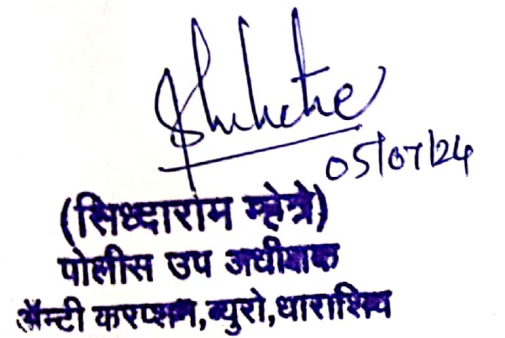 05/07/24
(सिध्दाराम म्हेत्रे)
पोलीस उप अधीक्षक
ॲन्टी करप्शन,ब्युरो,धाराशिव